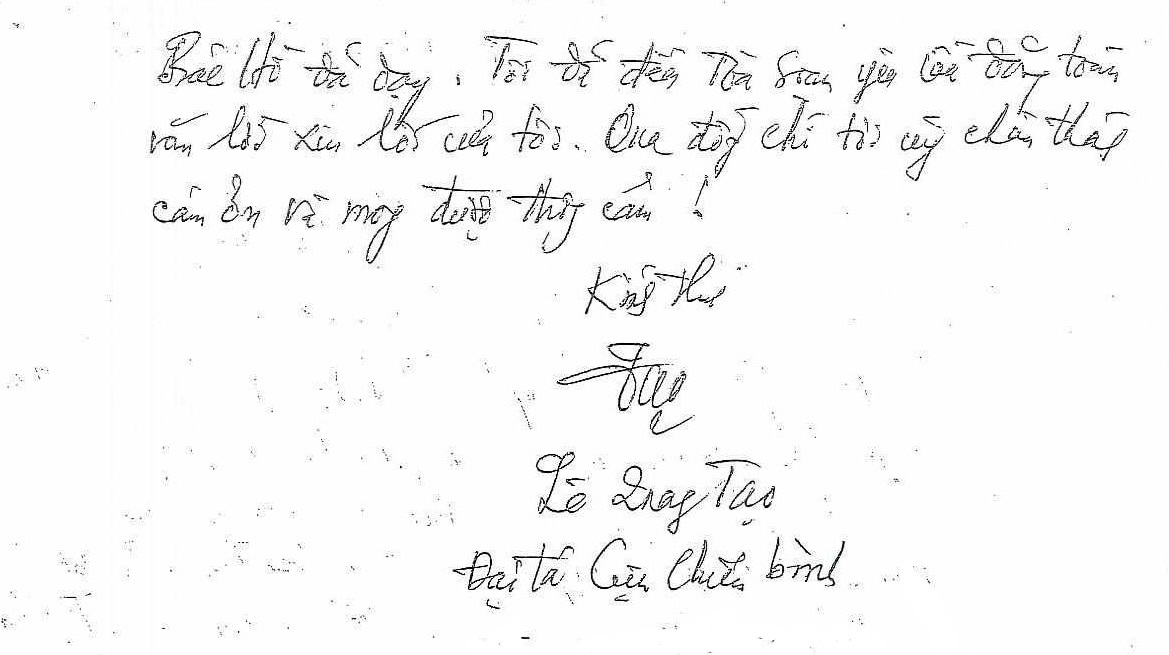 Bác Hồ đã dạy. Tôi đã đến Tòa Soạn yêu cầu đăng toàn
văn lời xin lỗi của tôi. Qua đồng chí tôi cũng chân thành
cám ơn và mong được thông cảm!
Kính thư
Lê Quang Tạo
Đại tá Cựu Chiến binh